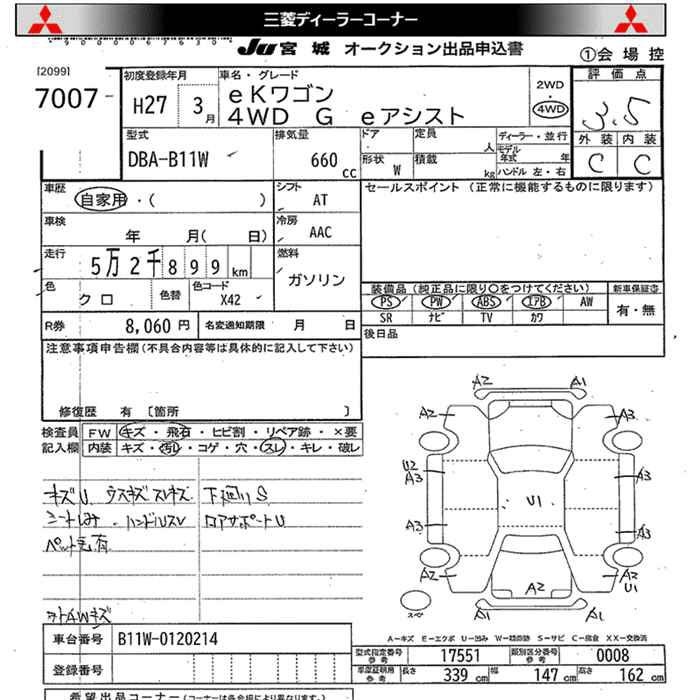 三菱ディーラーコーナー
JU 宮城 オークション出品申込書
①会場控
[2099]
7007
初度登録年月
H27 3月
車名・グレード
eKワゴン
4WD G eアシスト
2WD
4WD
評価点
3.5
外装 内装
C C
型式
DBA-B11W
排気量
660 cc
ドア
定員
人
形状
W
積載
kg
ディーラー・並行
モデル年式 年
ハンドル 左・右
車歴
自家用・( )
シフト
AT
セールスポイント (正常に機能するものに限ります)
車検
年 月( 日)
冷房
AAC
走行
5万2千899km
燃料
ガソリン
色
クロ
色替
色コード
X42
装備品 (純正品に限り○をつけてください)
新車保証書
PS PW ABS エアB AW
SR ナビ TV カワ
有・無
R券 8,060円
名変通知期限 月 日
後日品
注意事項申告欄 (不具合内容等は具体的に記入して下さい)
修復歴 有 〔箇所 〕
検査員記入欄
FW キズ・飛石・ヒビ割・リペア跡・×要
内装 キズ・汚れ・コゲ・穴・スレ・キレ・破レ
キズU ウスキズ スレキズ 下廻りS
シートしみ ・ハンドルスレ コアサポートU
ペット毛有
外AWキズ
A2 A1
A2 A3
U2
A3 A3
U1
A3 A3
A2 A2 A2
U1
A1 A1
A-キズ E-エクボ U-凹み W-補修跡 S-サビ C-腐食 XX-交換済
車台番号 B11W-0120214
登録番号
型式指定番号 参考 17551
類別区分番号 参考 0008
車庫証明用 参考 長さ 339 cm 幅 147 cm 高さ 162 cm
希望出品コーナー (コーナーは各会場により異なります。)